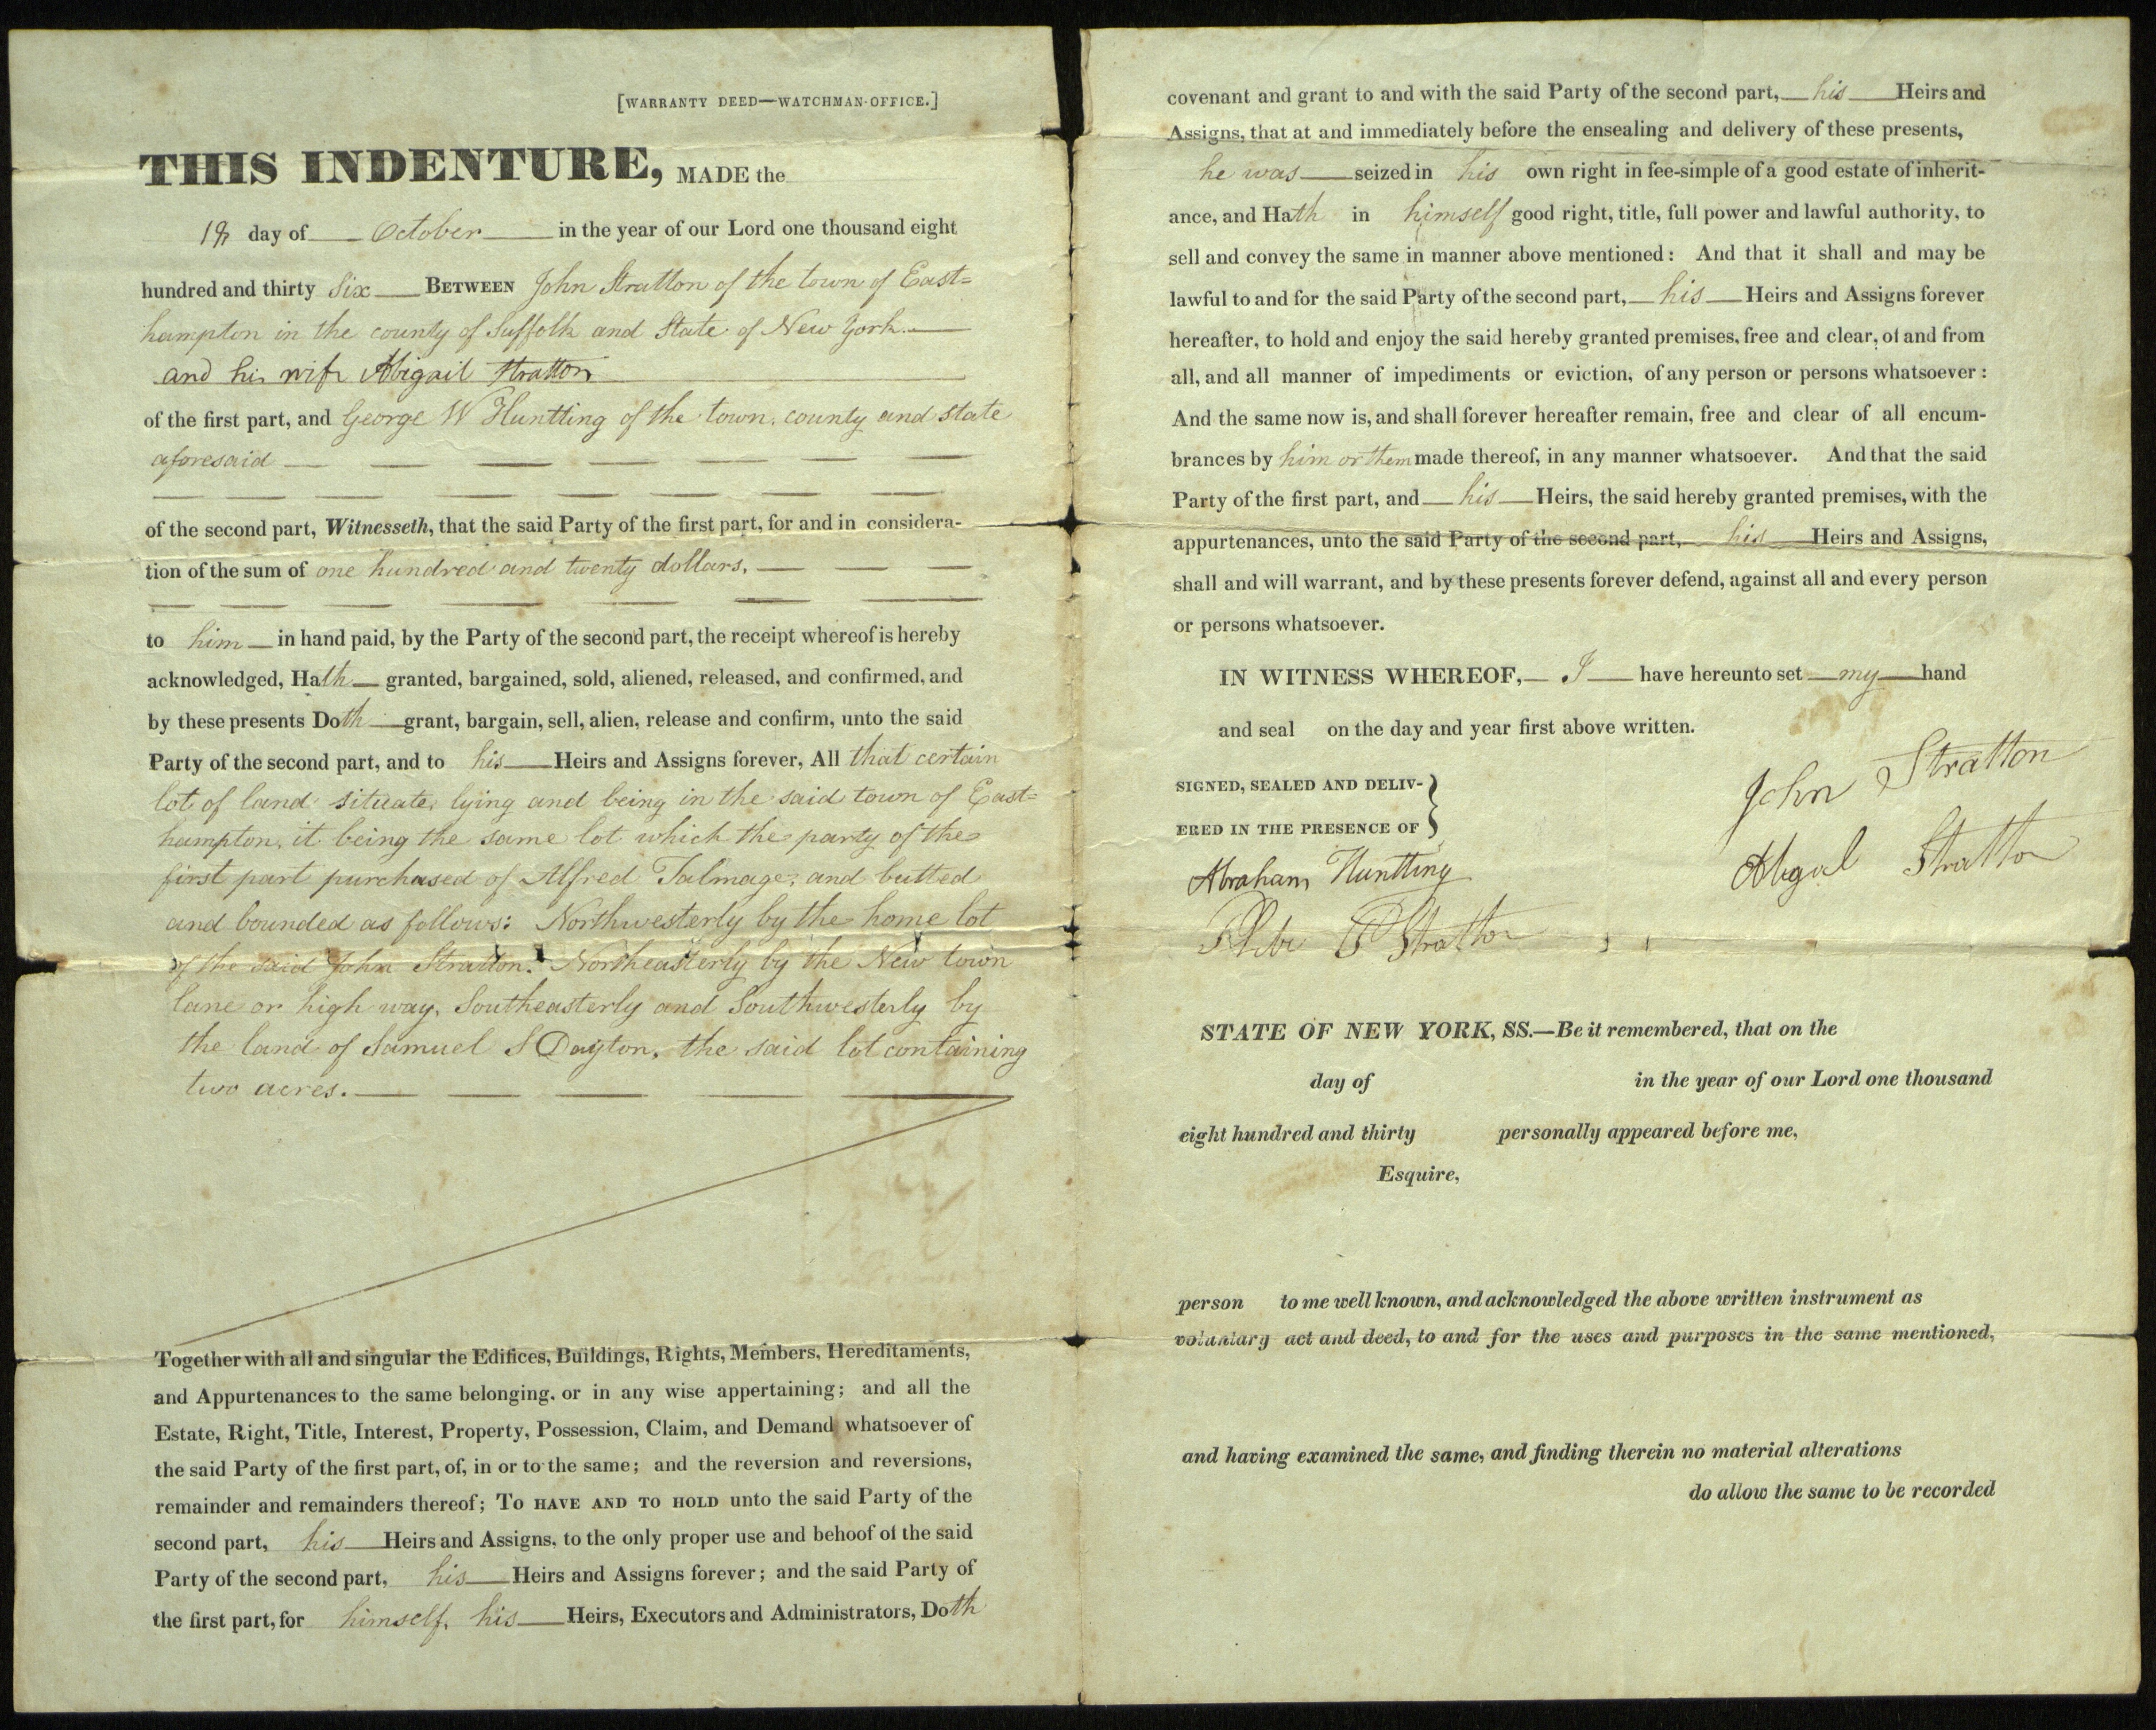 [WARRANTY DEED—WATCHMAN-OFFICE.]
THIS INDENTURE, MADE the
day of October in the year of our Lord one thousand eight
hundred and thirty Six BETWEEN John Stratton of the town of East=
hampton in the county of Suffolk and State of New York.
and his wife Abigail Stratton
of the first part, and George W Huntting of the town, county and state
aforesaid
of the second part, Witnesseth, that the said Party of the first part, for and in considera-
tion of the sum of one hundred and twenty dollars,
to him in hand paid, by the Party of the second part, the receipt whereof is hereby
acknowledged, Hath granted, bargained, sold, aliened, released, and confirmed, and
by these presents Doth grant, bargain, sell, alien, release and confirm, unto the said
Party of the second part, and to his Heirs and Assigns forever, All that certain
lot of land situate, lying and being in the said town of East=
hampton, it being the same lot which the party of the
first part purchased of Alfred Talmage, and butted
and bounded as follows: Northwesterly by the home lot
of the said John Stratton. Northeasterly by the New town
lane or high way, Southeasterly and Southwesterly by
the land of Samuel S Dayton, the said lot containing
two acres.
Together with all and singular the Edifices, Buildings, Rights, Members, Hereditaments,
and Appurtenances to the same belonging, or in any wise appertaining; and all the
Estate, Right, Title, Interest, Property, Possession, Claim, and Demand whatsoever of
the said Party of the first part, of, in or to the same; and the reversion and reversions,
remainder and remainders thereof; TO HAVE AND TO HOLD unto the said Party of the
second part, his Heirs and Assigns, to the only proper use and behoof of the said
Party of the second part, his Heirs and Assigns forever; and the said Party of
the first part, for himself, his Heirs, Executors and Administrators, Doth
covenant and grant to and with the said Party of the second part, his Heirs and
Assigns, that at and immediately before the ensealing and delivery of these presents,
he was seized in his own right in fee-simple of a good estate of inherit-
ance, and Hath in himself good right, title, full power and lawful authority, to
sell and convey the same in manner above mentioned: And that it shall and may be
lawful to and for the said Party of the second part, his Heirs and Assigns forever
hereafter, to hold and enjoy the said hereby granted premises, free and clear, of and from
all, and all manner of impediments or eviction, of any person or persons whatsoever:
And the same now is, and shall forever hereafter remain, free and clear of all encum-
brances by him or them made thereof, in any manner whatsoever. And that the said
Party of the first part, and his Heirs, the said hereby granted premises, with the
appurtenances, unto the said Party of the second part, his Heirs and Assigns,
shall and will warrant, and by these presents forever defend, against all and every person
or persons whatsoever.
IN WITNESS WHEREOF, I have hereunto set my hand
and seal on the day and year first above written.
SIGNED, SEALED AND DELIV-
ERED IN THE PRESENCE OF
John Stratton
Abigal Stratton
Abraham Huntting
Stratton
STATE OF NEW YORK, SS.—Be it remembered, that on the
day of in the year of our Lord one thousand
eight hundred and thirty personally appeared before me,
Esquire,
person to me well known, and acknowledged the above written instrument as
voluntary act and deed, to and for the uses and purposes in the same mentioned,
and having examined the same, and finding therein no material alterations
do allow the same to be recorded